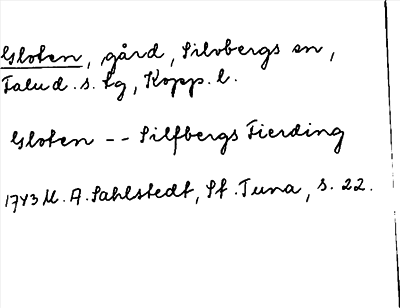 Gloten, gård, Silvbergs sn,
Falu d. s. lg, Kopp. l.
Gloten -- Silfbergs Fierding
1743 M. A. Sahlstedt, St. Tuna, s. 22.